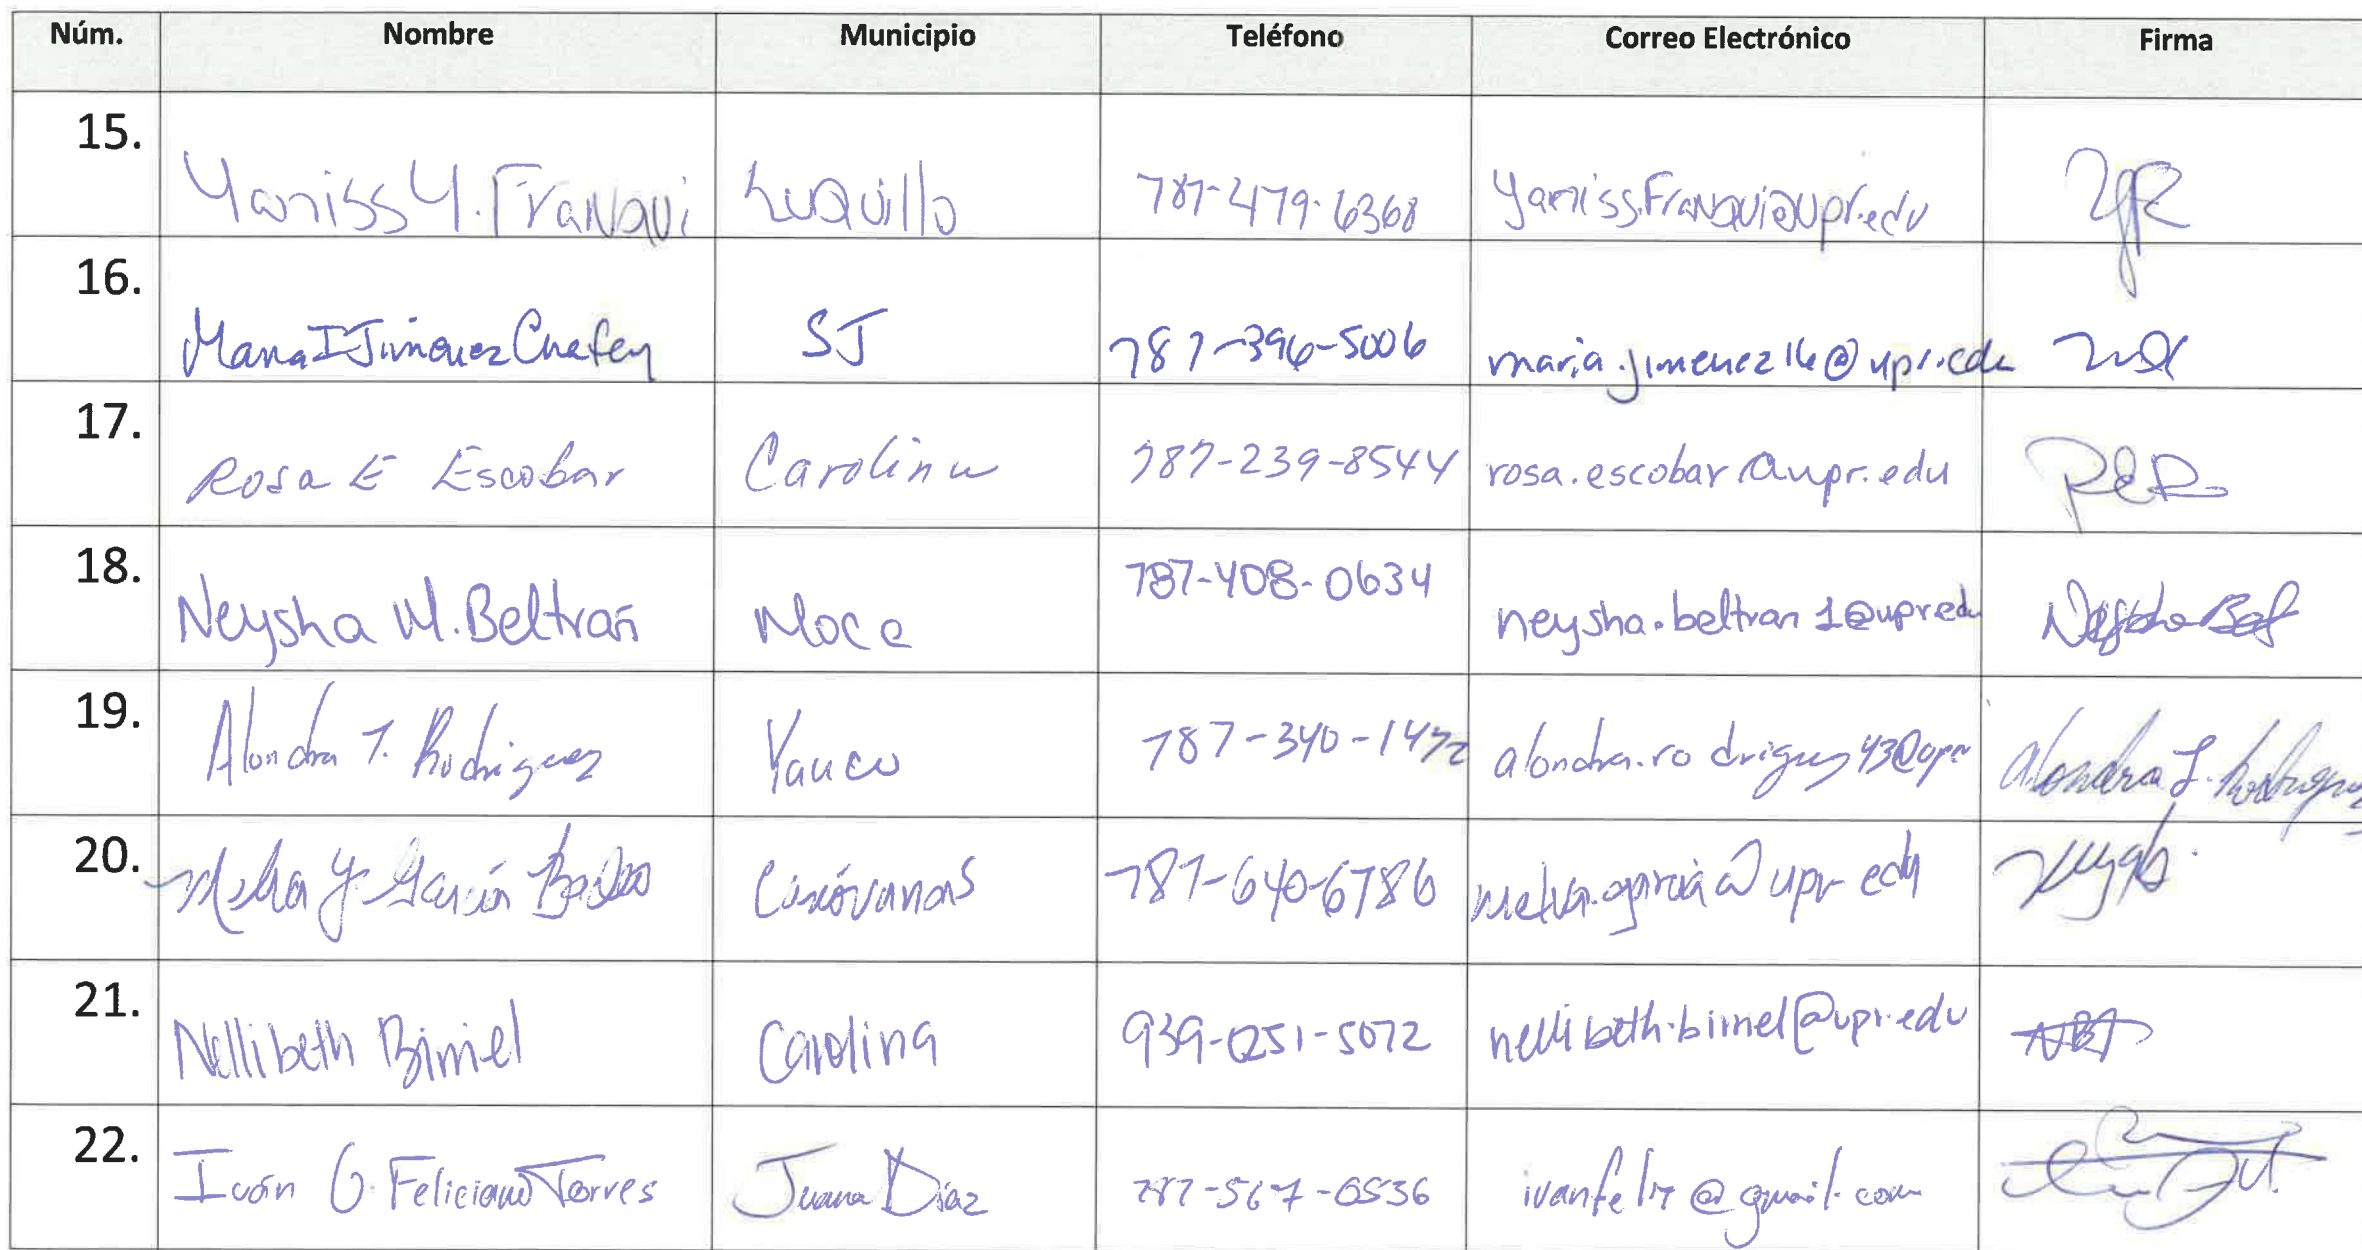 Núm. Nombre Municipio Teléfono Correo Electrónico Firma
15. Yaniss Y. Franqui Luquillo 787-479-6368 yaniss.franqui@upr.edu
16. Maria I Jimenez Chafey SJ 787-396-5006 maria.jimenez16@upr.edu
17. Rosa E Escobar Carolina 787-239-8544 rosa.escobar@upr.edu
18. Neysha M. Beltran Moca 787-408-0634 neysha.beltran1@upr.edu
19. Alondra T. Rodriguez Yauco 787-340-1472 alondra.rodriguez43@upr Alondra T. Rodriguez
20. Melba Y. García Canóvanas 787-640-6786 melba.garcia@upr.edu
21. Nellibeth Bimel Carolina 939-251-5072 nellibeth.bimel@upr.edu
22. Iván G. Feliciano Torres Juana Díaz 787-567-0536 ivanfel17@gmail.com